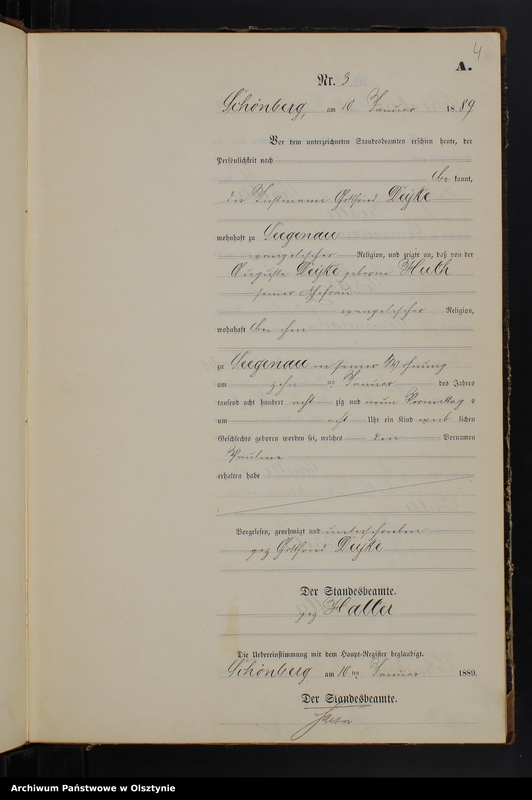 4
A.
Nr. 3
Schönberg, am 10 Januar 1889
Vor dem unterzeichneten Standesbeamten erschien heute, der
Persönlichkeit nach
kannt,
der Gottfried Deyke
wohnhaft zu Seegenau
evangelischer Religion, und zeigte an, daß von der
Auguste Deyke geborne Huth
seiner Ehefrau
evangelischer Religion,
wohnhaft bei ihm
zu Seegenau in seiner Wohnung
am zehn ten Januar des Jahres
tausend acht hundert acht zig und neun Vormittags
um acht Uhr ein Kind weib lichen
Geschlechts geboren worden sei, welches den Vornamen
Pauline
erhalten habe
Vorgelesen, genehmigt und unterschrieben
gez Gottfried Deyke
Der Standesbeamte.
gez Halter
Die Uebereinstimmung mit dem Haupt-Register beglaubigt.
Schönberg am 10 ten Januar 1889.
Der Standesbeamte.
Archiwum Państwowe w Olsztynie